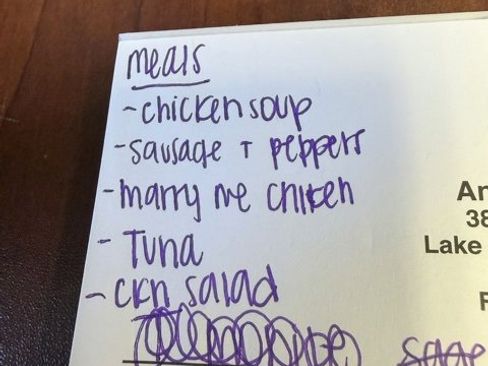 meals
- chicken soup
- sausage + peppers
- marry me chicken
- Tuna
- ckn salad
An
38
Lake
F